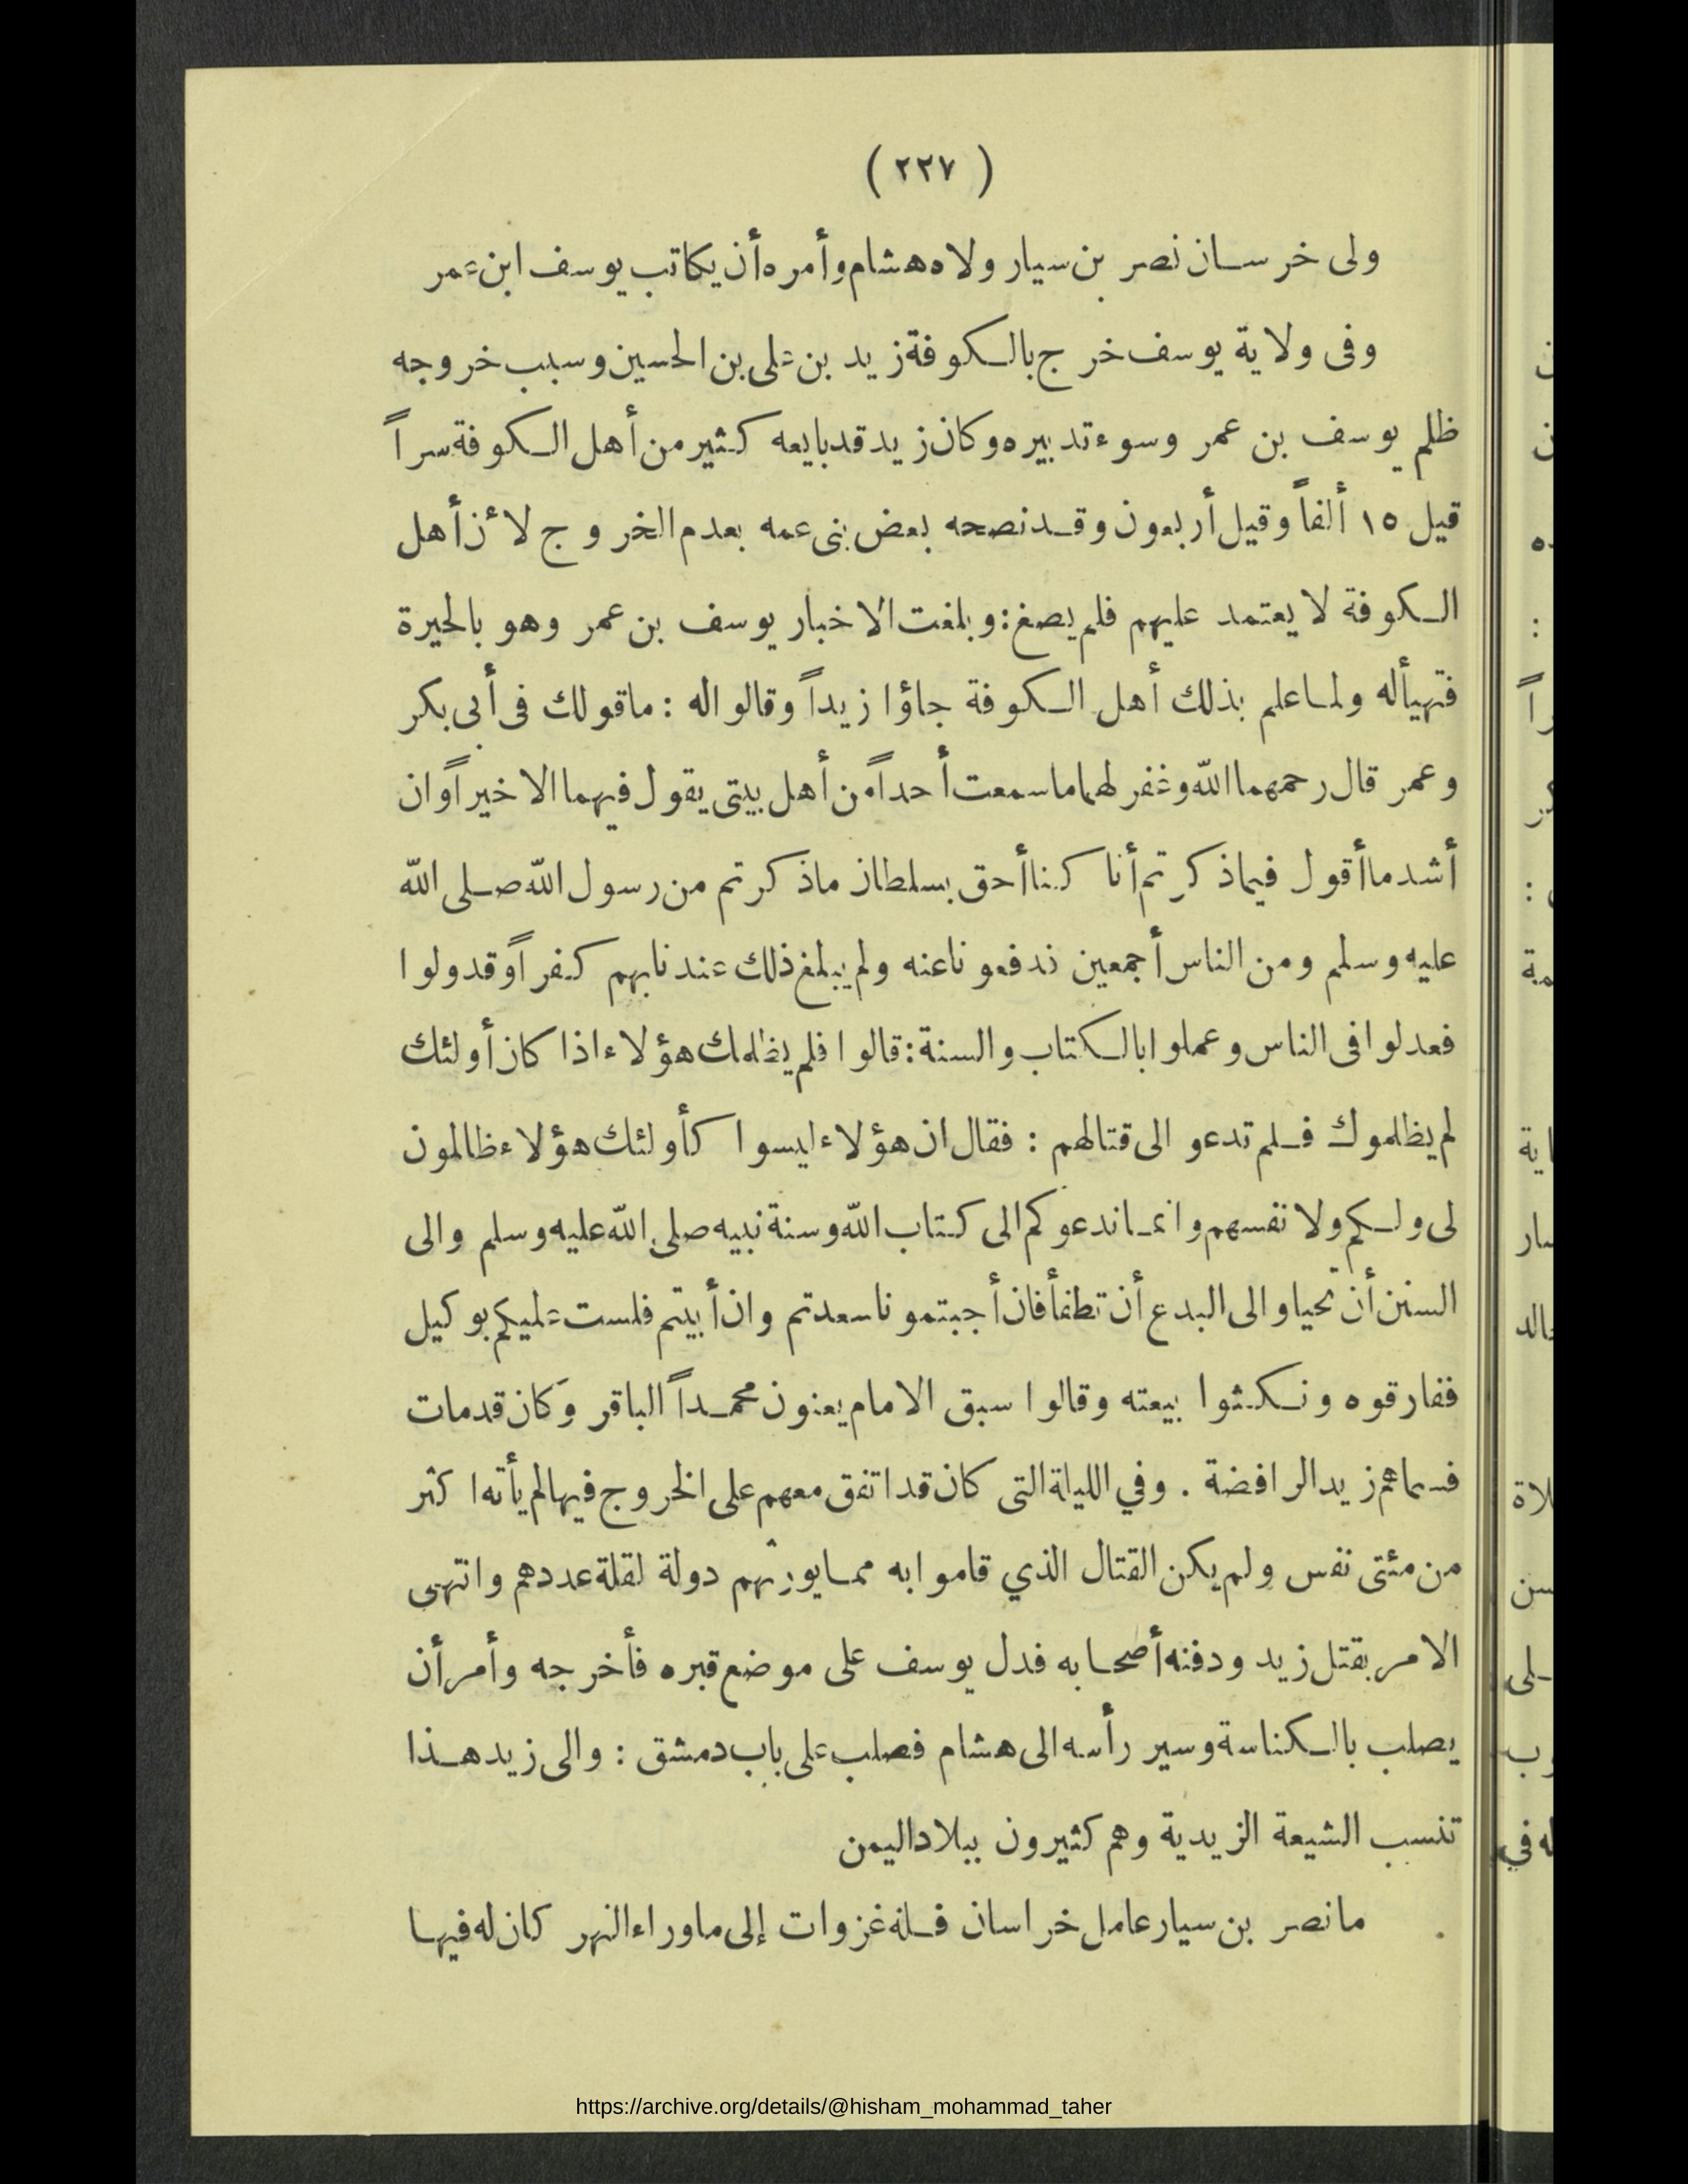 ( ٢٢٧ )
ولى خرسان نصر بن سيار ولاه هشام وأمره أن يكاتب يوسف ابن عمر
وفى ولاية يوسف خرج بالكوفة زيد بن على بن الحسين وسبب خروجه
ظلم يوسف بن عمر وسوء تدبيره وكان زيد قد بايعه كثير من أهل الكوفة سراً
قيل ١٥ ألفاً وقيل أربعون وقد نصحه بعض بنى عمه بعدم الخروج لأن أهل
الكوفة لا يعتمد عليهم فلم يصغ : وبلغت الاخبار يوسف بن عمر وهو بالحيرة
فتهيأ له ولما علم بذلك أهل الكوفة جاؤا زيداً وقالوا له : ما قولك فى أبى بكر
وعمر قال رحمهما الله وغفر لهما ما سمعت أحداً من أهل بيتى يقول فيهما الا خيراً وان
أشد ما أقول فيما ذكرتم أنا كنا أحق بسلطان ما ذكرتم من رسول الله صلى الله
عليه وسلم ومن الناس أجمعين فدفعونا عنه ولم يبلغ ذلك عندنا بهم كفراً وقد ولوا
فعدلوا فى الناس وعملوا بالكتاب والسنة : قالوا فلم يظلمك هؤلاء اذا كان أولئك
لم يظلموك فلم تدعو الى قتالهم : فقال ان هؤلاء ليسوا كأولئك هؤلاء ظالمون
لى ولكم ولا نفسهم وانما ندعوكم الى كتاب الله وسنة نبيه صلى الله عليه وسلم والى
السنن أن تحيا والى البدع أن تطفأ فان أجبتمونا سعدتم وان أبيتم فلست عليكم بوكيل
ففارقوه ونكثوا بيعته وقالوا سبق الامام يعنون محمداً الباقر وكان قد مات
فسماهم زيد الرافضة . وفي الليلة التى كان قد اتفق معهم على الخروج فيها لم يأته اكثر
من مئتى نفس ولم يكن القتال الذي قاموا به مما يورثهم دولة لقلة عددهم وانتهى
الامر بقتل زيد ودفنه أصحابه فدل يوسف على موضع قبره فأخرجه وأمر أن
يصلب بالكناسة وسير رأسه الى هشام فصلب على باب دمشق : والى زيد هذا
تنسب الشيعة الزيدية وهم كثيرون ببلاد اليمن
ما نصر بن سيار عامل خراسان فله غزوات إلى ما وراء النهر كان له فيها
https://archive.org/details/@hisham_mohammad_taher